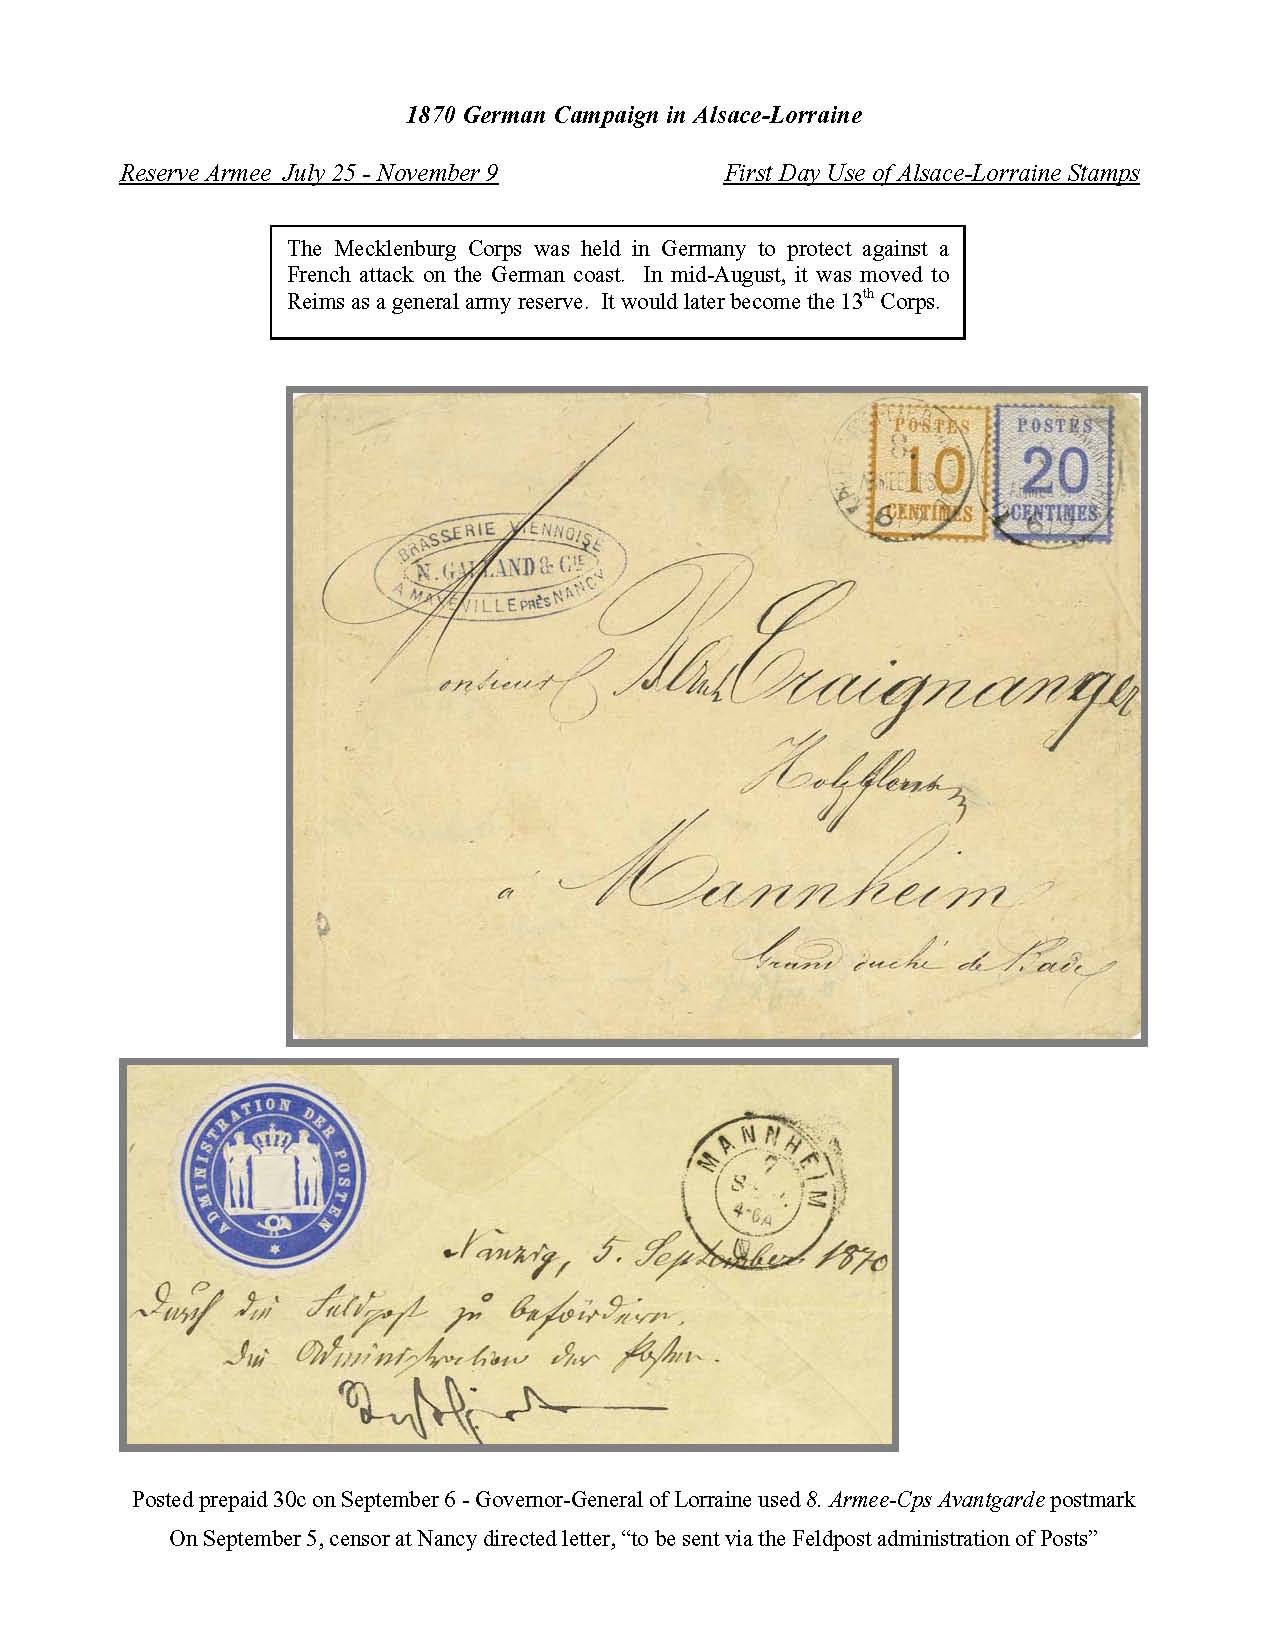 1870 German Campaign in Alsace-Lorraine
Reserve Armee July 25 - November 9
First Day Use of Alsace-Lorraine Stamps
The Mecklenburg Corps was held in Germany to protect against a
French attack on the German coast. In mid-August, it was moved to
Reims as a general army reserve. It would later become the 13th Corps.
POSTES
10
CENTIMES
POSTES
20
CENTIMES
8.
6/9
6/9
BRASSERIE VIENNOISE
N. GALLAND & CIE
A MAXEVILLE PRÈS NANCY
Monsieur Craignanger
à Mannheim
Grand duché de Bade
ADMINISTRATION DER POSTEN
MANNHEIM
7
4-6A
Nanzig, 5. September 1870
Durch die Feldpost zu befördern.
Die Administration der Posten.
Posted prepaid 30c on September 6 - Governor-General of Lorraine used 8. Armee-Cps Avantgarde postmark
On September 5, censor at Nancy directed letter, “to be sent via the Feldpost administration of Posts”